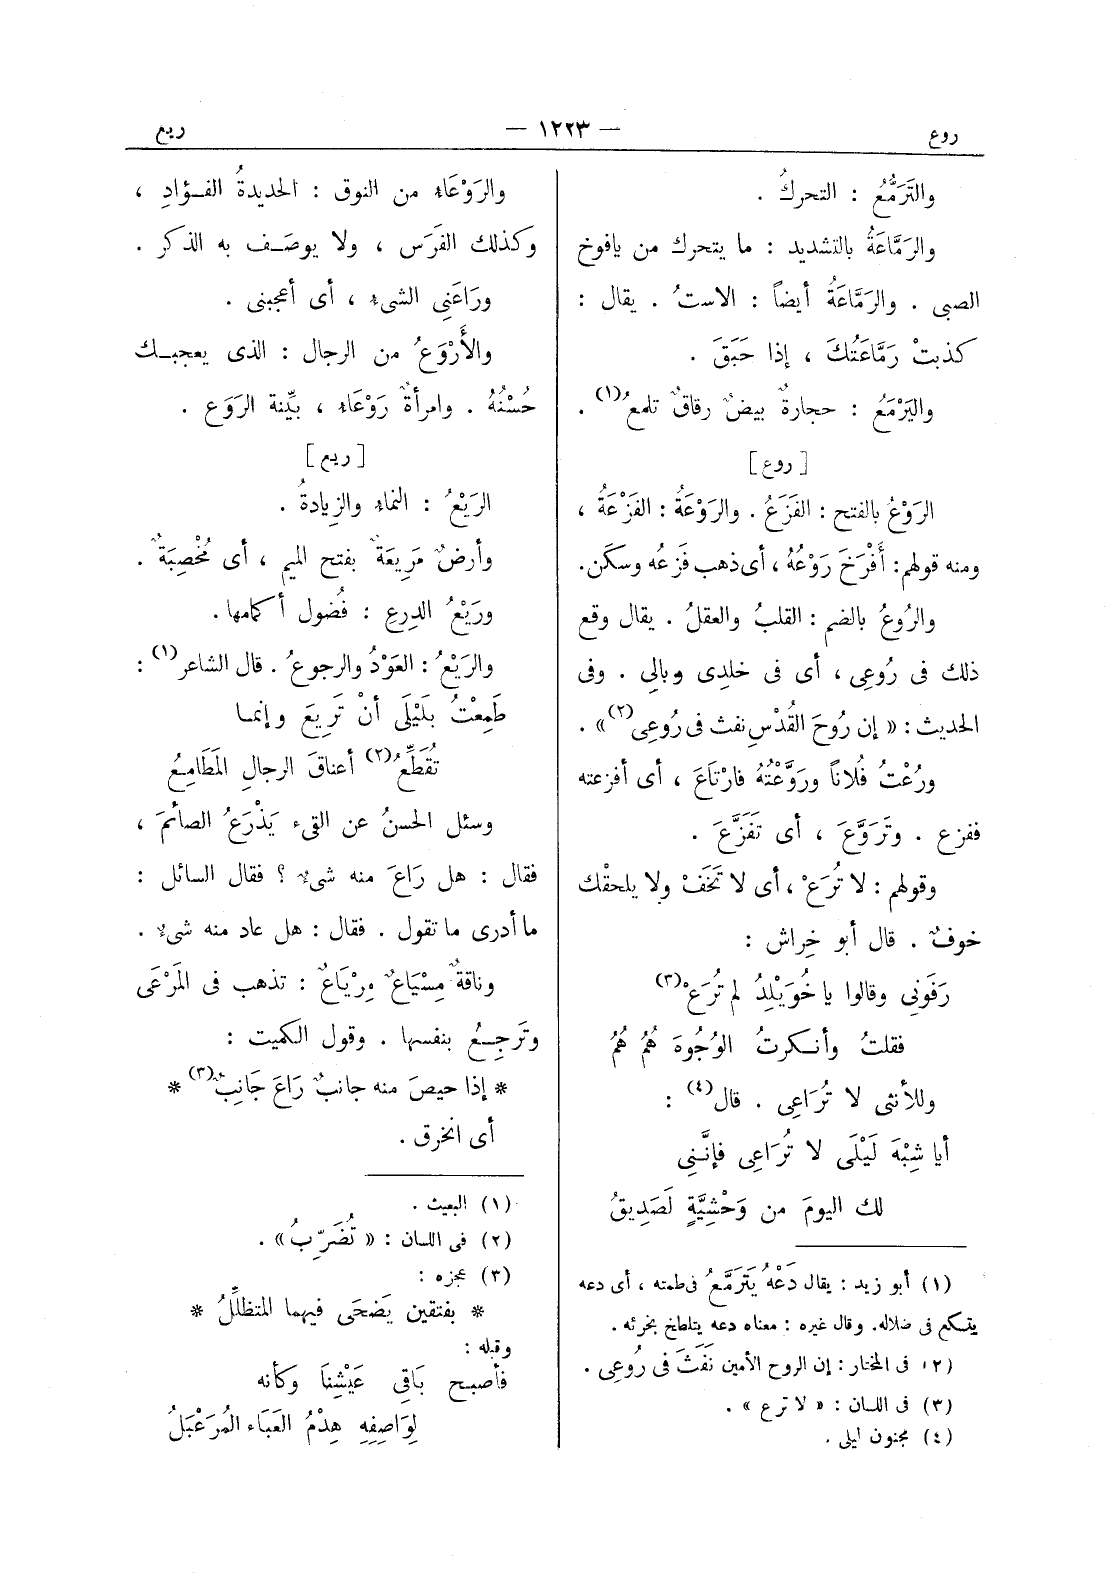 روع
— ١٢٢٣ —
ريع
والتَرَمُّعُ : التحركُ .
والرَمَّاعَةُ بالتشديد : ما يتحرك من يافوخ
الصبى . والرَمَّاعَةُ أيضاً : الاستُ . يقال :
كذبتْ رَمَّاعَتُكَ ، إذا حَبَقَ .
واليَرْمَعُ : حجارةٌ بيضٌ رقاقٌ تلمعُ(١) .
[ روع ]
الرَوْعُ بالفتح : الفَزَعُ . والرَوْعَةُ : الفَزْعَةُ ،
ومنه قولهم: أَفْرَخَ رَوْعُهُ ، أى ذهب فَزعُه وسكَن.
والرُوعُ بالضم : القلبُ والعقلُ . يقال وقع
ذلك فى رُوعِى ، أى فى خلدِى وبالِى . وفى
الحديث : « إن رُوحَ القُدْسِ نفث فى رُوعِى(٢) » .
ورُعْتُ فُلاناً ورَوَّعْتُهُ فارْتَاعَ ، أى أفزعته
ففزع . وتَرَوَّعَ ، أى تَفَزَّعَ .
وقولهم : لا تُرَعْ ، أى لا تَخَفْ ولا يلحقْك
خوفٌ . قال أبو خِراش :
رَفَونِى وقالوا يا خُوَيْلِدُ لم تُرَعْ(٣)
فقلتُ وأنكرتُ الوُجُوهَ هُمُ هُمُ
وللأنثى لا تُرَاعِى . قال(٤) :
أيا شِبْهَ لَيْلَى لا تُرَاعِى فإنَّنِى
لك اليومَ من وَحْشِيَّةٍ لَصَدِيقُ
(١) أبو زيد : يقال دَعْهُ يَتَرَمَّعُ فى طمته ، أى دعه
يتسكع فى ضلاله. وقال غيره : معناه دعه يتلطخ بخرئه .
(٢) فى المختار : إن الروح الأمين نَفَثَ فى رُوعِى .
(٣) فى اللسان : « لا ترع » .
(٤) مجنون ليلى .
والرَوْعَاء من النوق : الحديدةُ الفؤادِ ،
وكذلك الفَرَس ، ولا يوصَف به الذكر .
ورَاعَنِى الشىء ، أى أعجبنى .
والأَرْوَعُ من الرجال : الذى يعجبك
حُسْنُهُ . وامرأةٌ رَوْعَاء ، بيِّنة الرَوَعِ .
[ ريع ]
الرَيْعُ : النماء والزيادةُ .
وأرضٌ مَرِيعَةٌ بفتح الميم ، أى مُخْصِبَةٌ .
ورَيْعُ الدرعِ : فُضول أكمامها .
والرَيْعُ : العَوْدُ والرجوعُ . قال الشاعر(١) :
طَمِعْتُ بلَيْلَى أنْ تَرِيعَ وإنما
تُقَطِّعُ(٢) أعناقَ الرجالِ المَطَامِعُ
وسئل الحسنُ عن القىء يَذْرَعُ الصائمَ ،
فقال : هل رَاعَ منه شىء ؟ فقال السائل :
ما أدرى ما تقول . فقال : هل عاد منه شىء .
وناقةٌ مِسْيَاعٌ مِرْيَاعٌ : تذهب فى المَرْعَى
وتَرجِعُ بنفسها . وقول الكميت :
* إذا حيصَ منه جانبٌ رَاعَ جَانِبٌ(٣) *
أى انخرق .
(١) البعيث .
(٢) فى اللسان : « تُضَرِّبُ » .
(٣) عجزه :
* بفتقين يَضحَى فيهما المتظلِّلُ *
وقبله :
فأصبح بَاقِى عَيْشِنَا وكأنه
لِوَاصِفِهِ هِدْمُ العَبَاء المُرَعْبَلُ